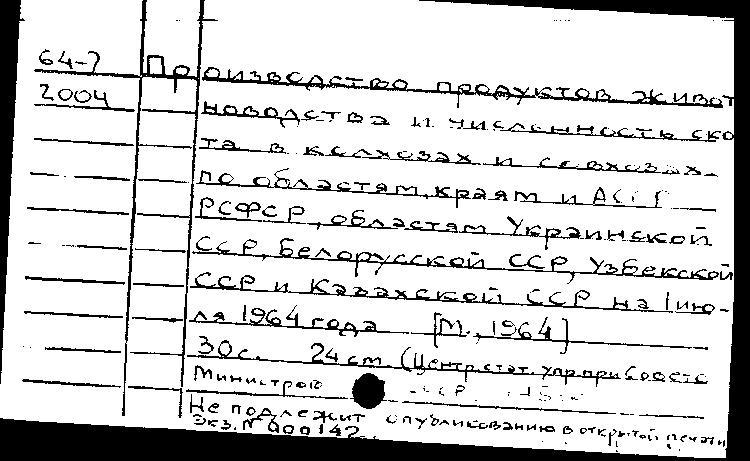 64-7 Производство продуктов живот
2004 новодства и численность ско
та в колхозах и совхозах
по областям, краям и АССР
РСФСР, областям Украинской
ССР, Белорусской ССР, Узбекской
ССР и Казахской ССР на 1 ию-
ля 1964 года [М., 1964]
30 с. 24 см. (Центр. стат. упр. при Совете
Министров ССР
Не подлежит опубликованию в открытой печати
Экз. №